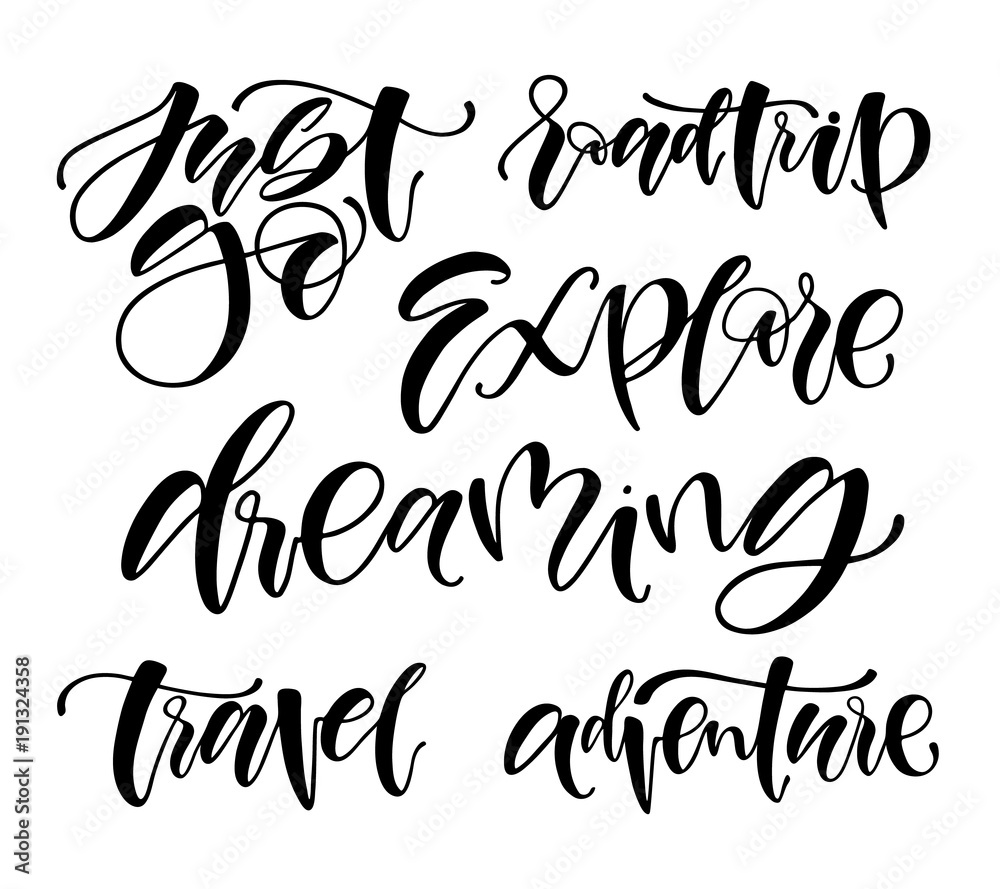 Just
go
roadtrip
Explore
dreaming
travel
adventure
Adobe Stock | #191324358